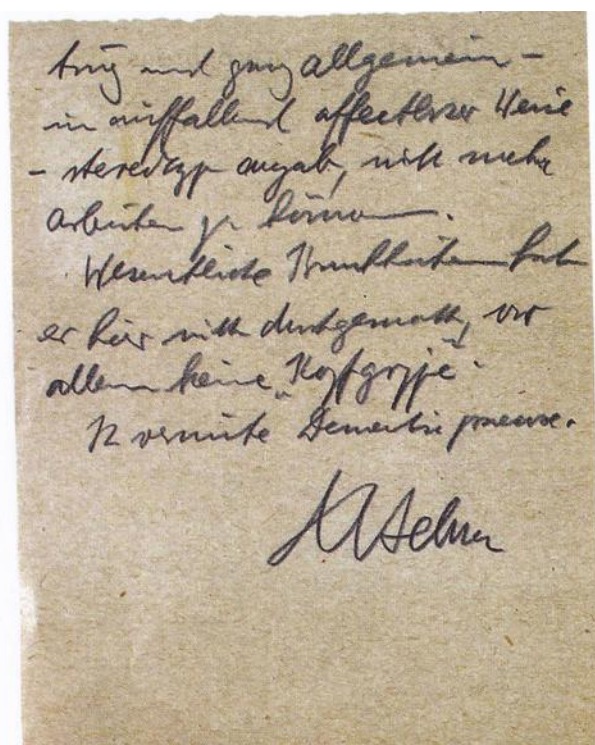 und ganz allgemein –
in auffallend affectloser Weise
– stereotyp angab, nicht mehr
arbeiten zu können.
Wesentliche Krankheiten hat
er hier nicht durchgemacht, vor
allem keine „Kopfgrippe".
vermute Dementia praecox.